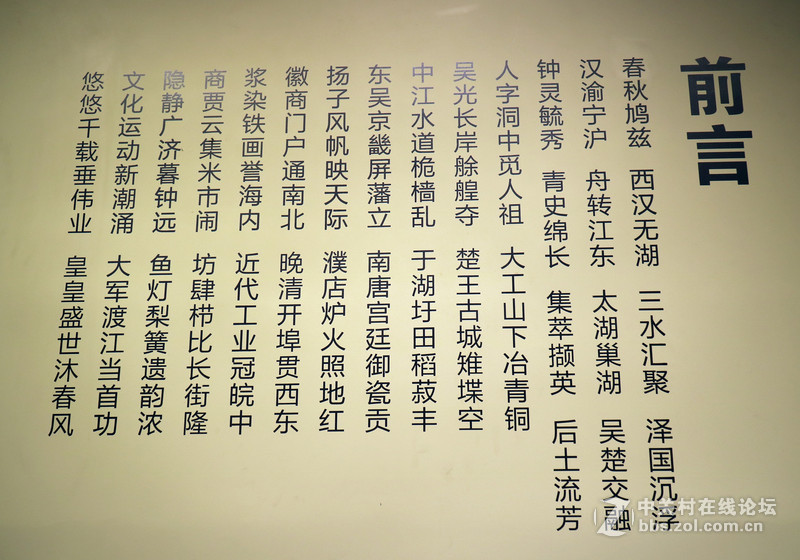 前言
春秋鸠兹 西汉无湖 三水汇聚 泽国沉浮
汉渝宁沪 舟转江东 太湖巢湖 吴楚交融
钟灵毓秀 青史绵长 集萃撷英 后土流芳
人字洞中觅人祖 大工山下冶青铜
吴光长岸艅艎夺 楚王古城雉堞空
中江水道桅樯乱 于湖圩田稻菽丰
东吴京畿屏藩立 南唐宫廷御瓷贡
扬子风帆映天际 濮店炉火照地红
徽商门户通南北 晚清开埠贯西东
浆染铁画誉海内 近代工业冠皖中
商贾云集米市闹 坊肆栉比长街隆
隐静广济暮钟远 鱼灯梨簧遗韵浓
文化运动新潮涌 大军渡江当首功
悠悠千载垂伟业 皇皇盛世沐春风
中关村在线论坛
bbs.zol.com.cn